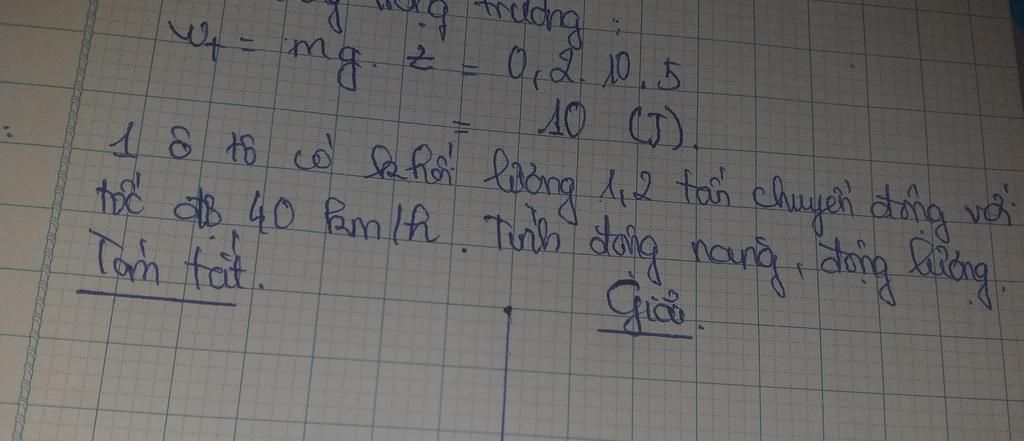 trọng trường :
Wt = mg. z = 0,2. 10. 5
= 10 (J).
1 ô tô có khối lượng 1,2 tấn chuyển động với
tốc độ 40 km/h. Tính động năng, động lượng.
Tóm tắt.
Giải.